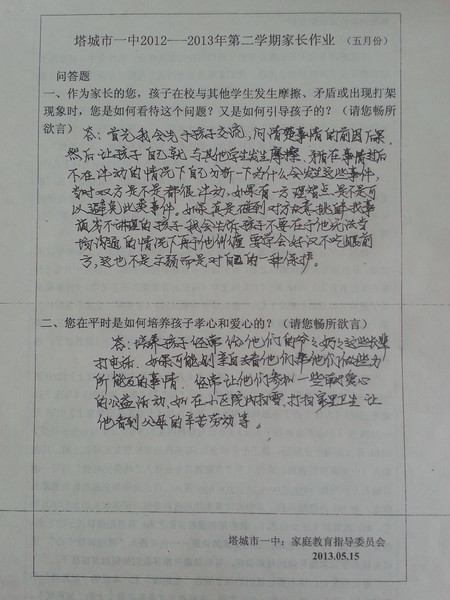 塔城市一中2012——2013年第二学期家长作业 （五月份）
问答题
一、作为家长的您，孩子在校与其他学生发生摩擦、矛盾或出现打架
现象时，您是如何看待这个问题？又是如何引导孩子的？（请您畅所
欲言） 答：首先我会先于孩子交流，问清楚事情的前因后果，
然后让孩子自己就与其他学生发生摩擦、矛盾在事情过后
不在冲动的情况下自己分析一下为什么会发生这些事件，
当时双方是不是都很冲动，如果有一方理智点是不是可
以避免此类事件。如果真是碰到对方故意挑衅找事
不讲理的孩子我会告诉孩子不要在于他无法
沟通的情况下再于他纠缠 要学会好汉不吃眼前
亏，这也不是示弱而是对自己的一种保护。
二、您在平时是如何培养孩子孝心和爱心的？（请您畅所欲言）
答：培养孩子经常给他们的爷爷奶奶这些长辈
打电话，如果可能亲自去看他们帮他们做些力
所能及的事情，经常让他们参加一些献爱心
的公益活动，如在小区院内扫雪、打扫家里卫生 让
他看到父母的辛苦劳动等。
塔城市一中：家庭教育指导委员会
2013.05.15